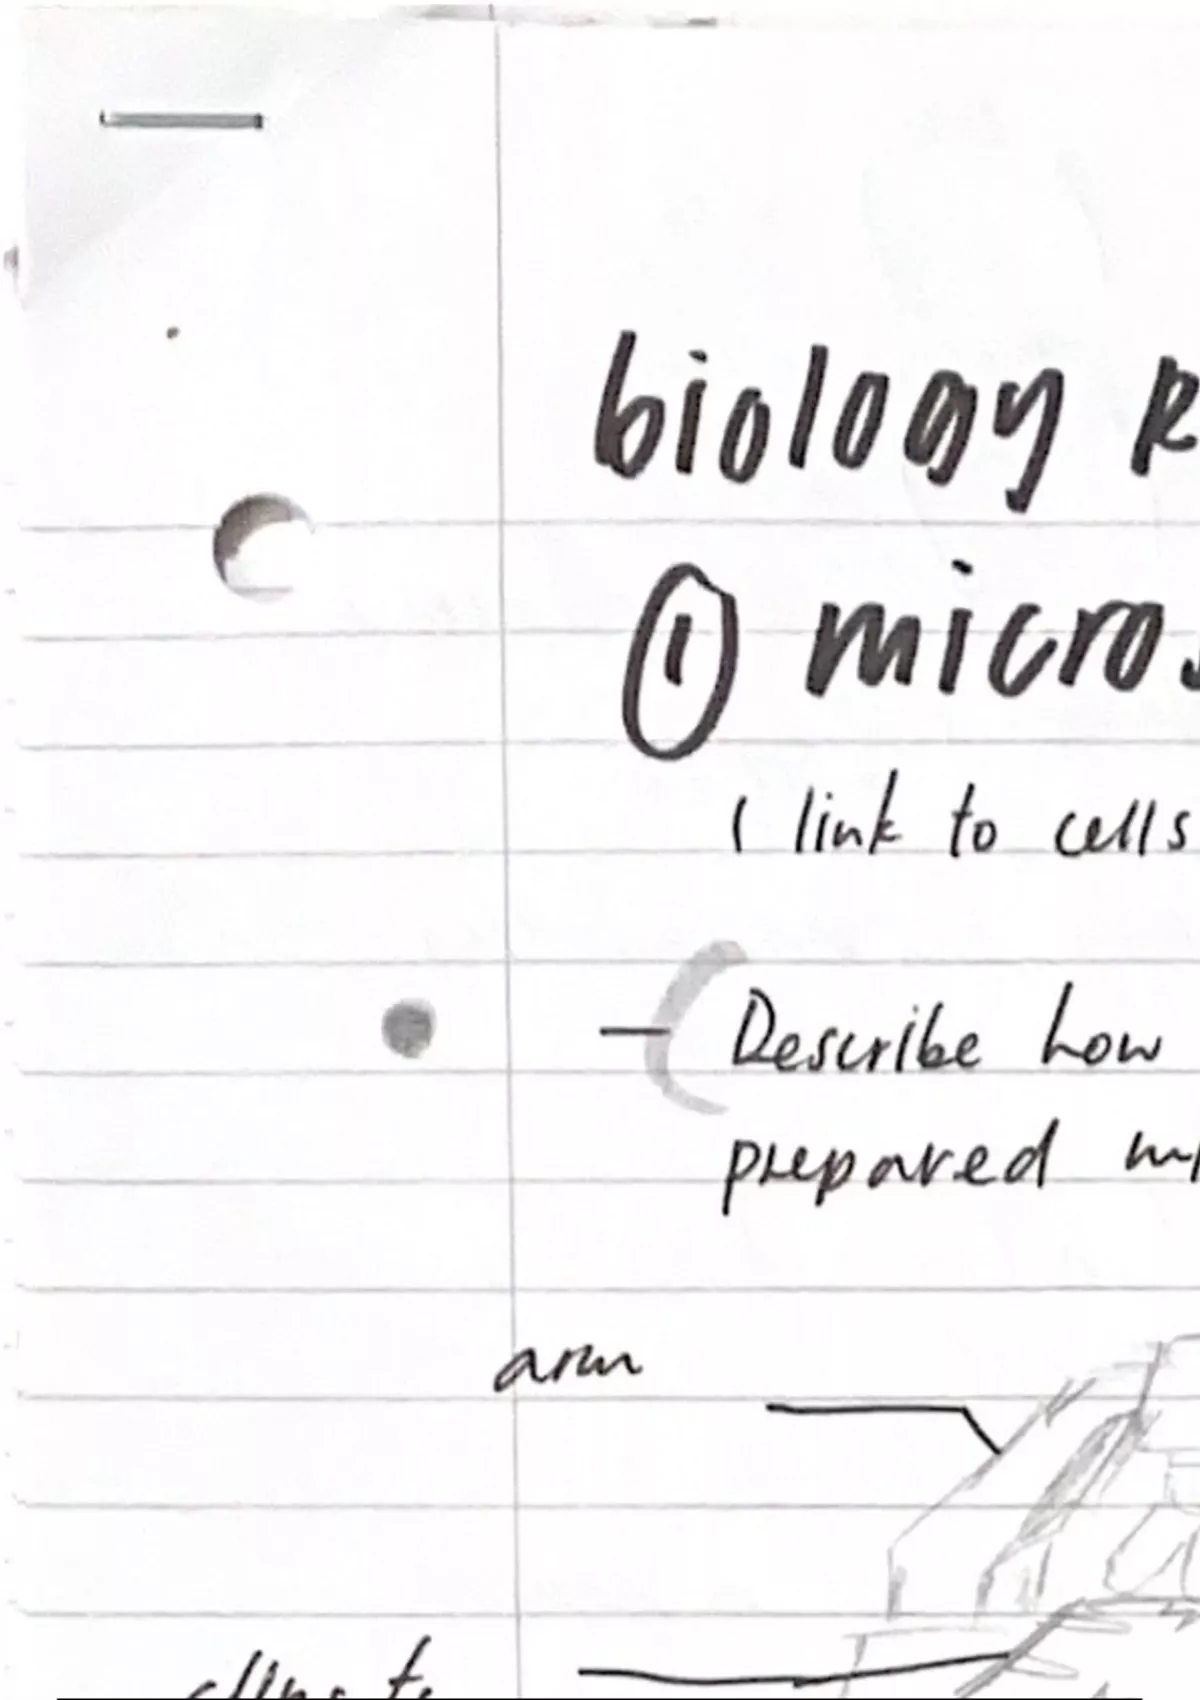 biology R
① micros
( link to cells
- Describe how
prepared
arm